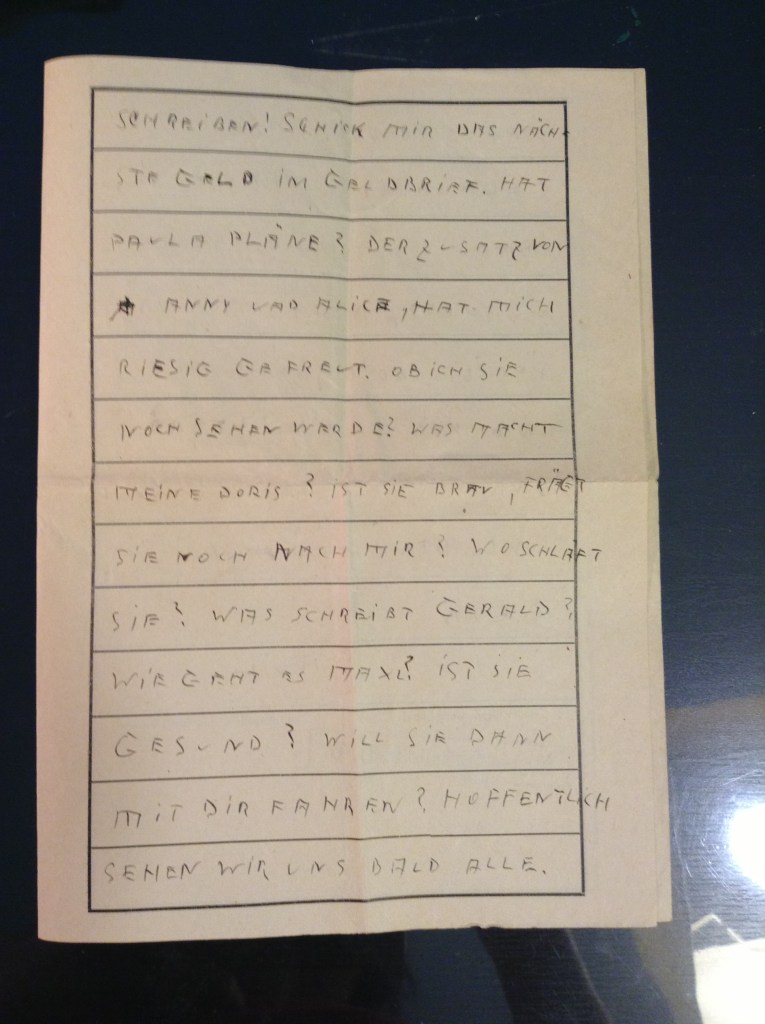 SCHREIBEN! SCHICK MIR DAS NÄCH-
STE GELD IM GELDBRIEF. HAT
PAULA PLÄNE? DER ZUSATZ VON
ANNY UND ALICE, HAT MICH
RIESIG GEFREUT. OB ICH SIE
NOCH SEHEN WERDE? WAS MACHT
MEINE DORIS? IST SIE BRAV, FRÄGT
SIE NOCH NACH MIR? WO SCHLÄFT
SIE? WAS SCHREIBT GERALD?
WIE GEHT ES MAXL? IST SIE
GESUND? WILL SIE DANN
MIT DIR FAHREN? HOFFENTLICH
SEHEN WIR UNS BALD ALLE.